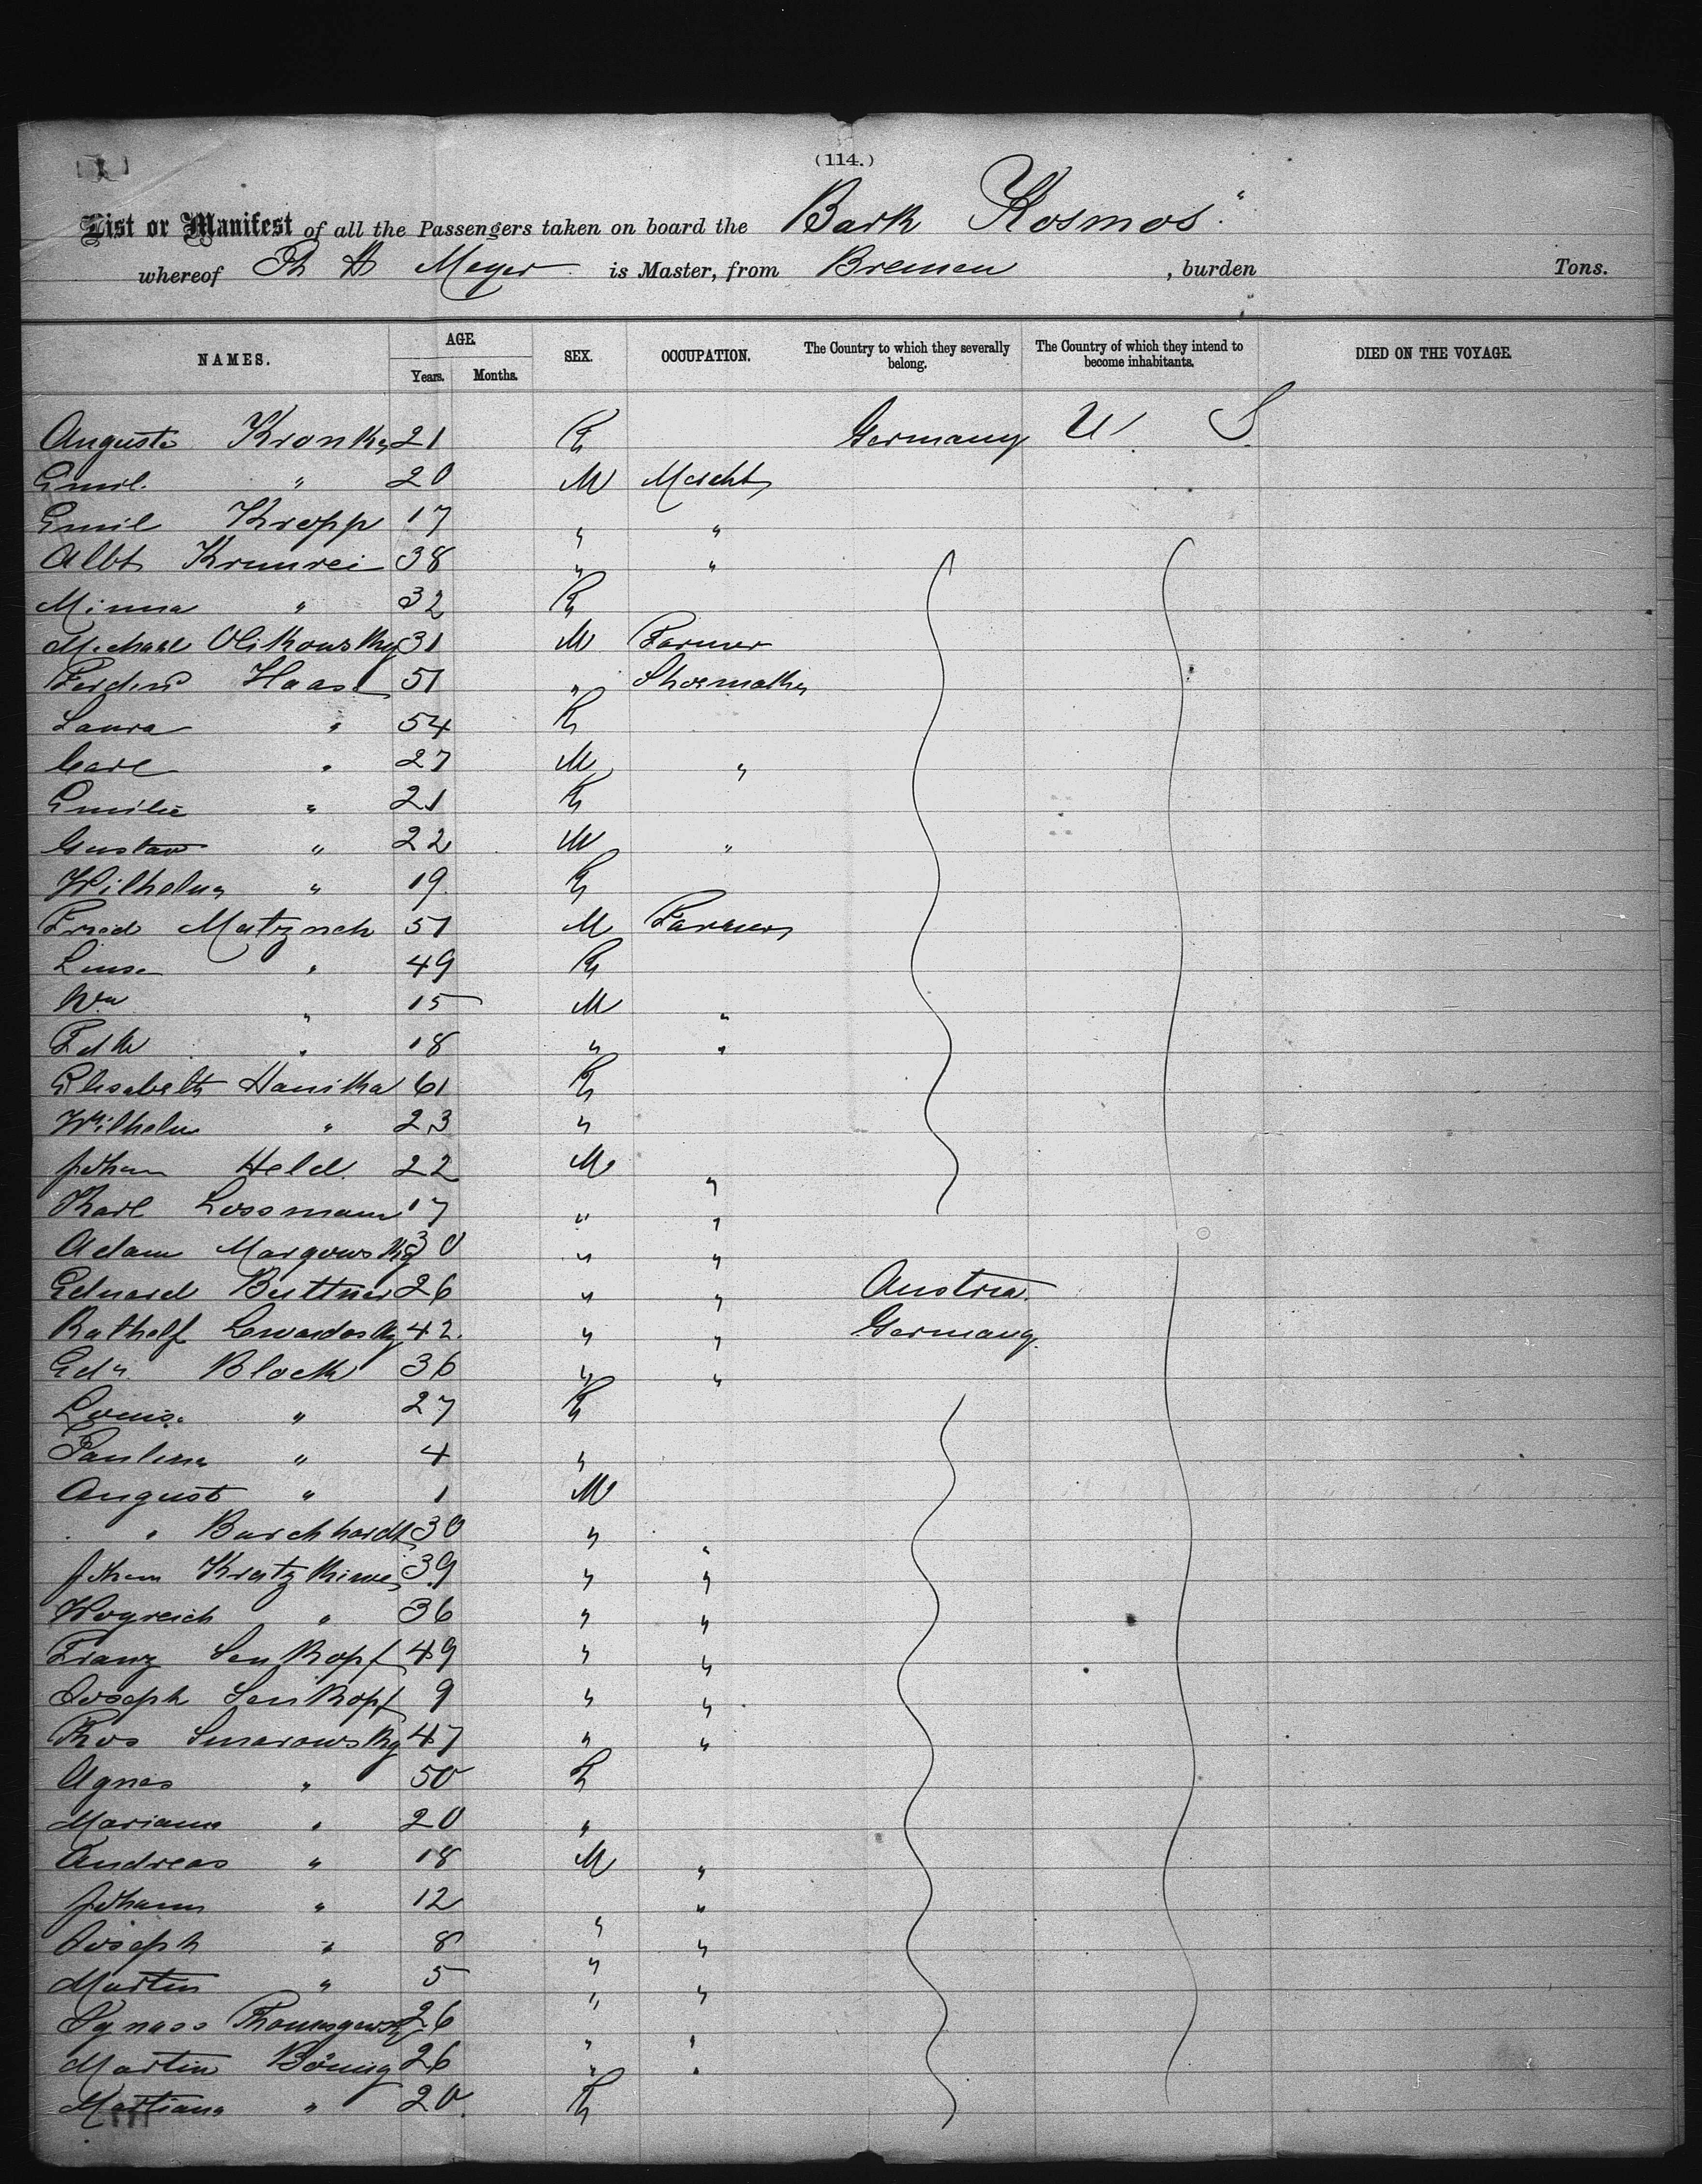 (114.)
List or Manifest of all the Passengers taken on board the Bark Kosmos"
whereof Meyer is Master, from Bremen , burden Tons.
NAMES. AGE. SEX. OCCUPATION. The Country to which they severally belong. The Country of which they intend to become inhabitants. DIED ON THE VOYAGE.
Years. Months.
Auguste 21 F Germany U S
Emil " 20 M Mercht
Emil Kropp 17 " "
Albt 38 " "
Minna " 32 F
Michael 31 M Farmer
Ferdind Haase 51 " Shoemaker
Laura " 54 F
Carl " 27 M "
Emilie " 21 F
Gustav " 22 M "
Wilhelm " 19 F
Fried 51 M Farmer
" 49 F
Wm " 15 M "
" 18 " "
Elisabeth Hanitka 61 F
Wilhelm " 23 "
Johann Held 22 M "
Karl Lossmann 17 " "
Adam Margowsky 30 " "
Eduard Buttner 26 " " Austria.
42 " " Germany.
Block 36 " "
Louisa " 27 F
Paulina " 4 "
August " 1 M
" Burchhardt 30 " "
Johann 39 " "
" 36 " "
Franz Senkopf 49 " "
Joseph Senkopf 9 " "
Thos Smarowsky 47 " "
Agnes " 50 F
Mariana " 20 "
Andreas " 18 M "
Johann " 12 " "
Joseph " 8 " "
Martin " 5 " "
Ignass 26 " "
Martin Bönig 26 " "
" 20 F